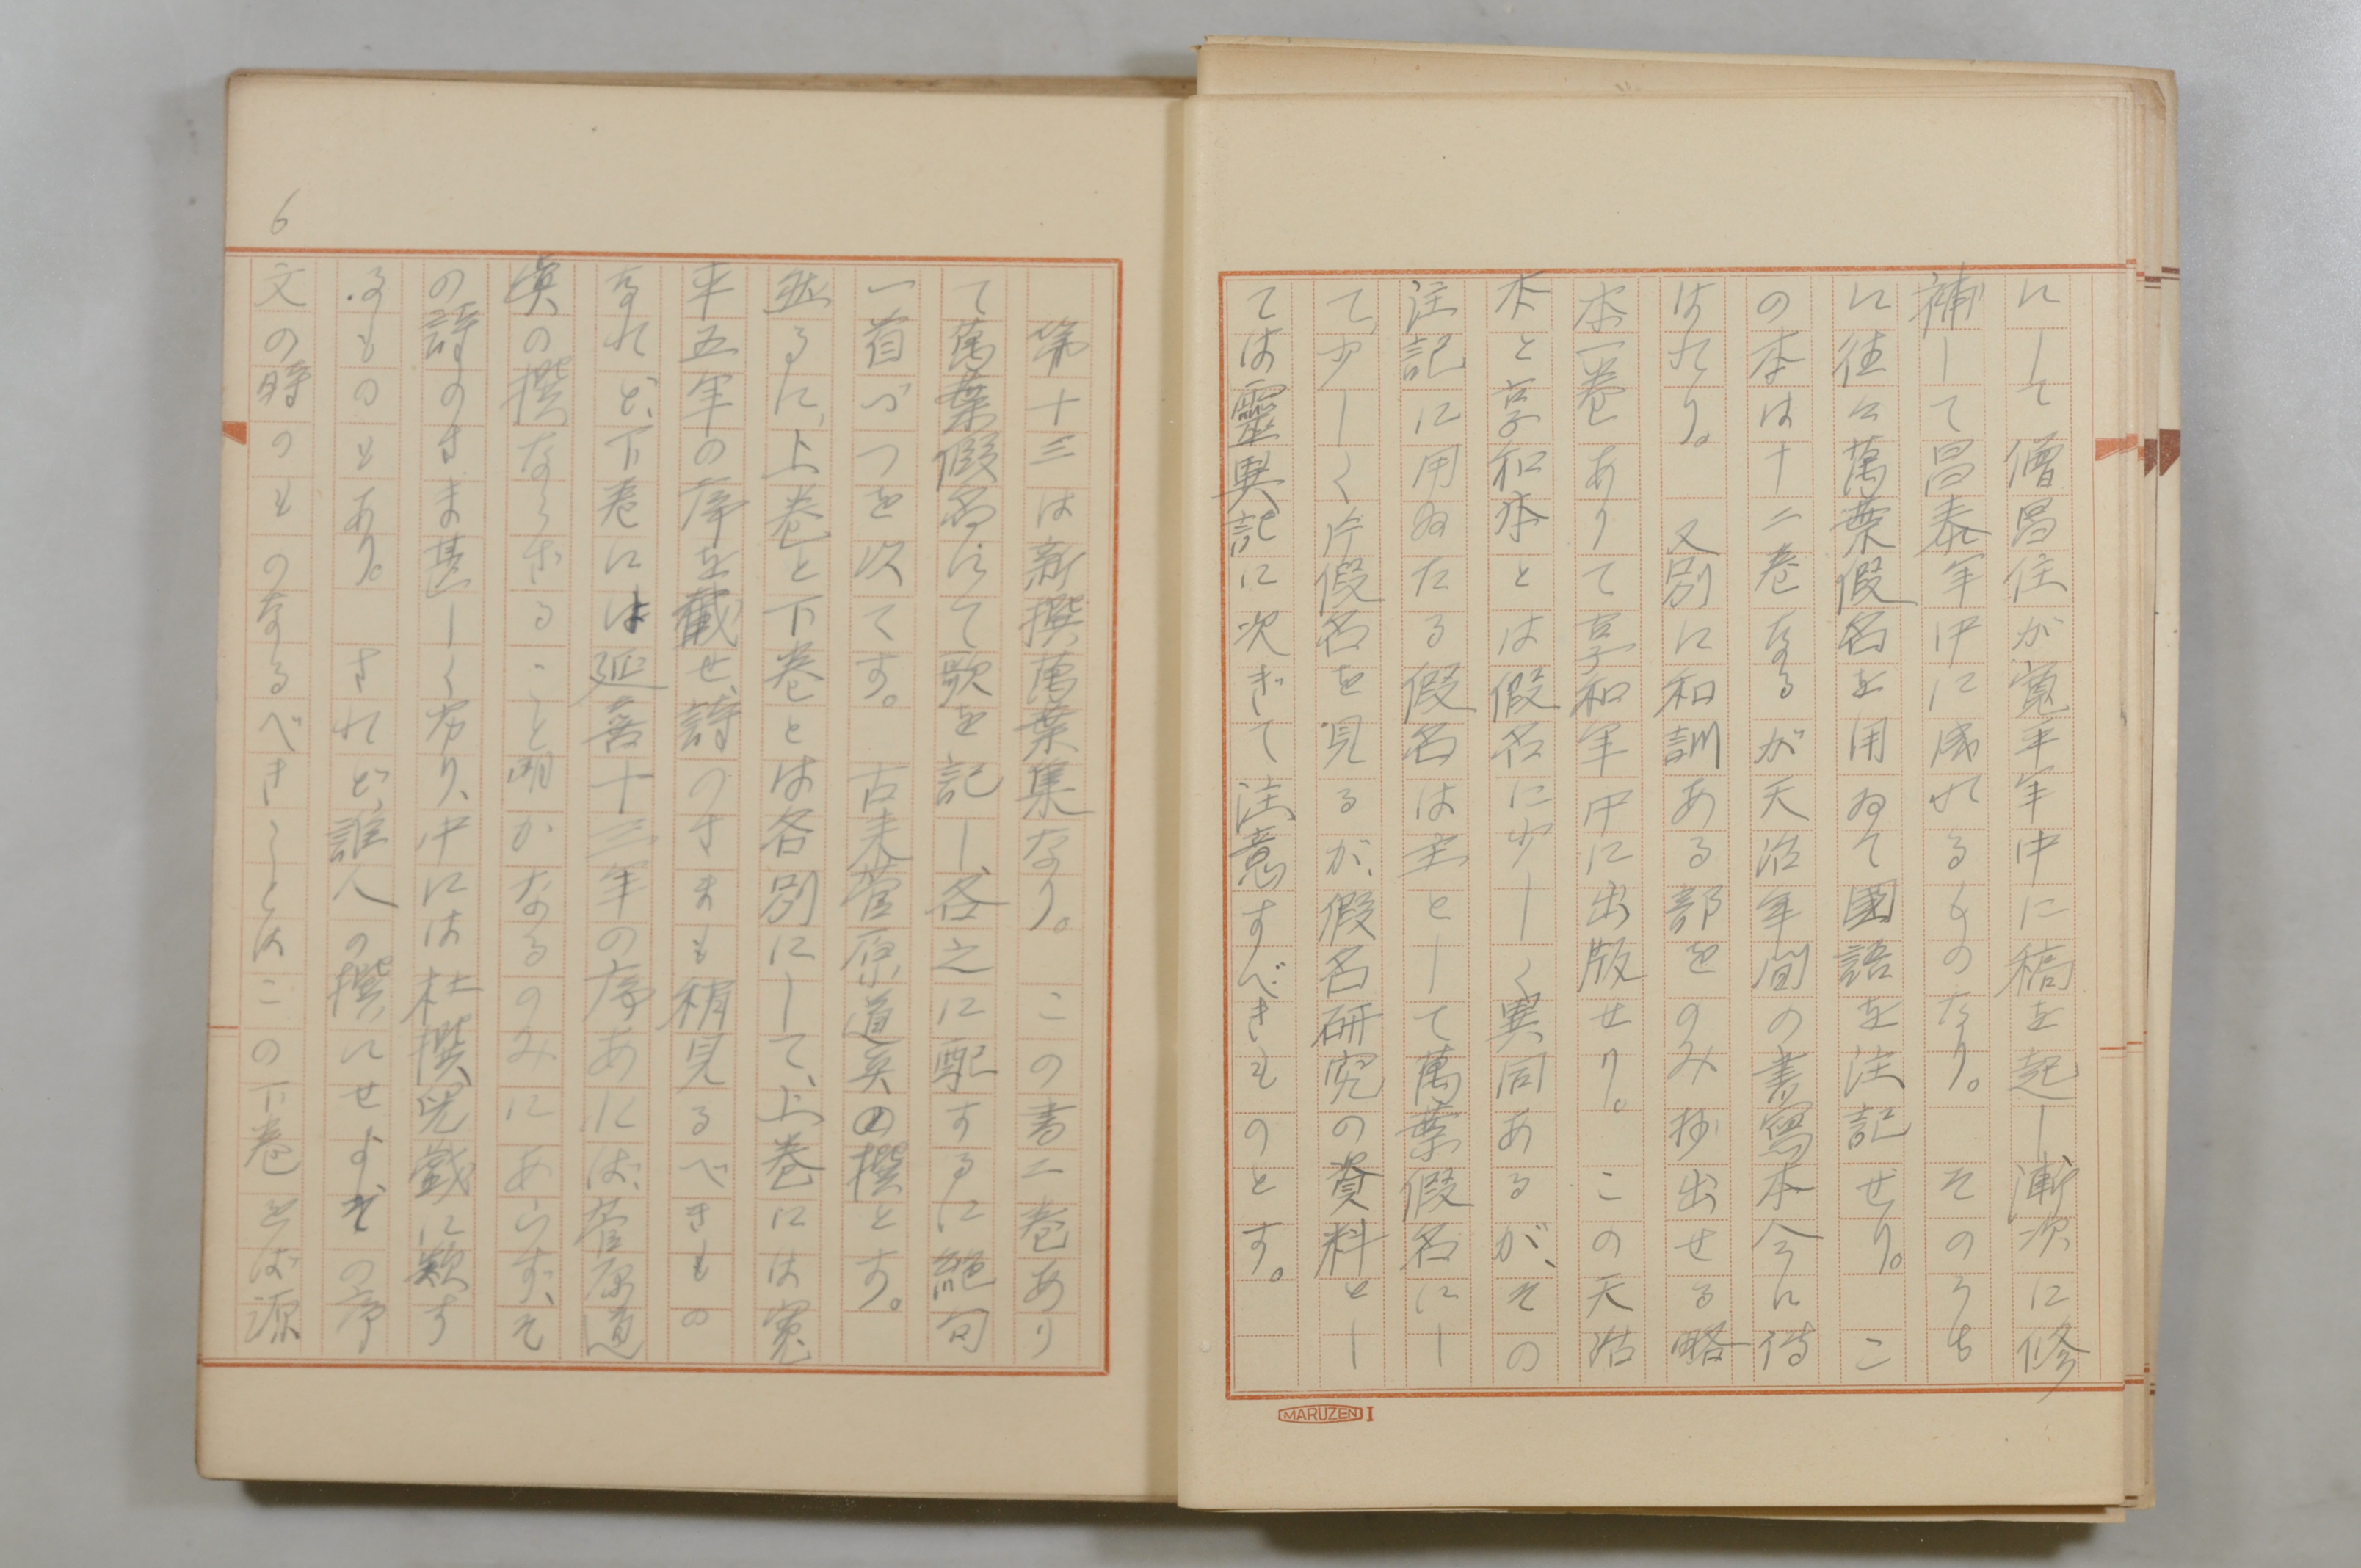 にして僧昌住が寛平年中に稿を起し漸次に修
補して昌泰年中に成れるものなり。　そのうち
に往々萬葉假名を用ゐて國語を注記せり。　こ
の本は十二巻なるが天治年間の書寫本今に傳
はれり。　又別に和訓ある部をのみ抄出せる略
本一巻ありて享和年中に出版せり。　この天治
本と享和本とは假名に少しく異同あるが、その
注記に用ゐたる假名は主として萬葉假名にし
て、少しく片假名を見るが、假名研究の資料とし
ては靈異記に次ぎて注意すべきものとす。
MARUZEN I
第十三は新撰萬葉集なり。　この書二巻あり
て萬葉假名にて歌を記し、各之に配するに絶句
一首づつを以てす。　古来菅原道眞の撰とす。
然るに、上巻と下巻とは各別にして、上巻には寛
平五年の序を載せ、詩のさまも稍見るべきもの
なれど、下巻には延喜十三年の序あれば、菅原道
眞の撰ならざること明かなるのみにあらず、そ
の詩のさま甚しく劣り、中には杜撰兒戯に類す
るものもあり。　されど、誰人の撰にせよ、その序
文の時のものなるべきことはこの下巻をば源
6